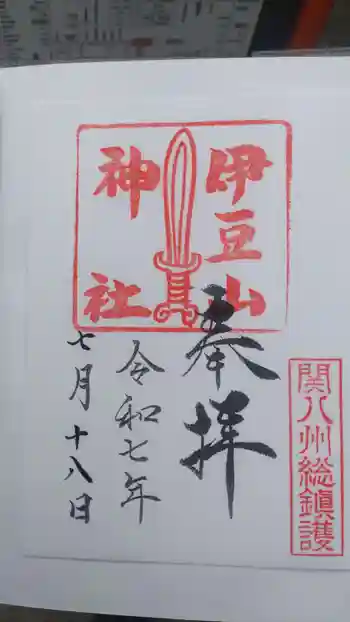 伊豆山
神社
奉拝
令和七年
七月十八日
関八州総鎮護